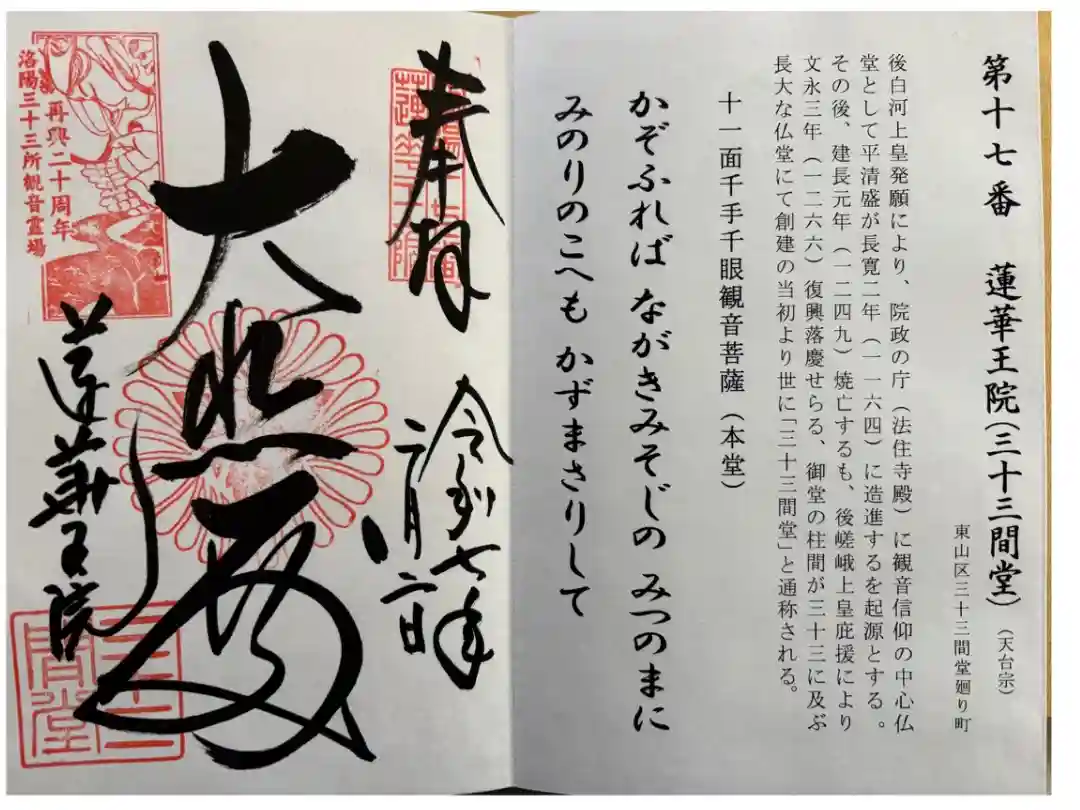 第十七番 蓮華王院(三十三間堂)(天台宗)
東山区三十三間堂廻り町
後白河上皇発願により、院政の庁(法住寺殿)に観音信仰の中心仏
堂として平清盛が長寛二年(一一六四)に造進するを起源とする。
その後、建長元年(一二四九)焼亡するも、後嵯峨上皇庇援により
文永三年(一二六六)復興落慶せらる、御堂の柱間が三十三に及ぶ
長大な仏堂にて創建の当初より世に「三十三間堂」と通称される。
十一面千手千眼観音菩薩(本堂)
かぞふれば ながきみそじの みつのまに
みのりのこへも かずまさりして
奉拝
令和七年
二月二日
大悲殿
蓮華王院
再興二十周年
洛陽三十三所観音霊場
三十三
間堂